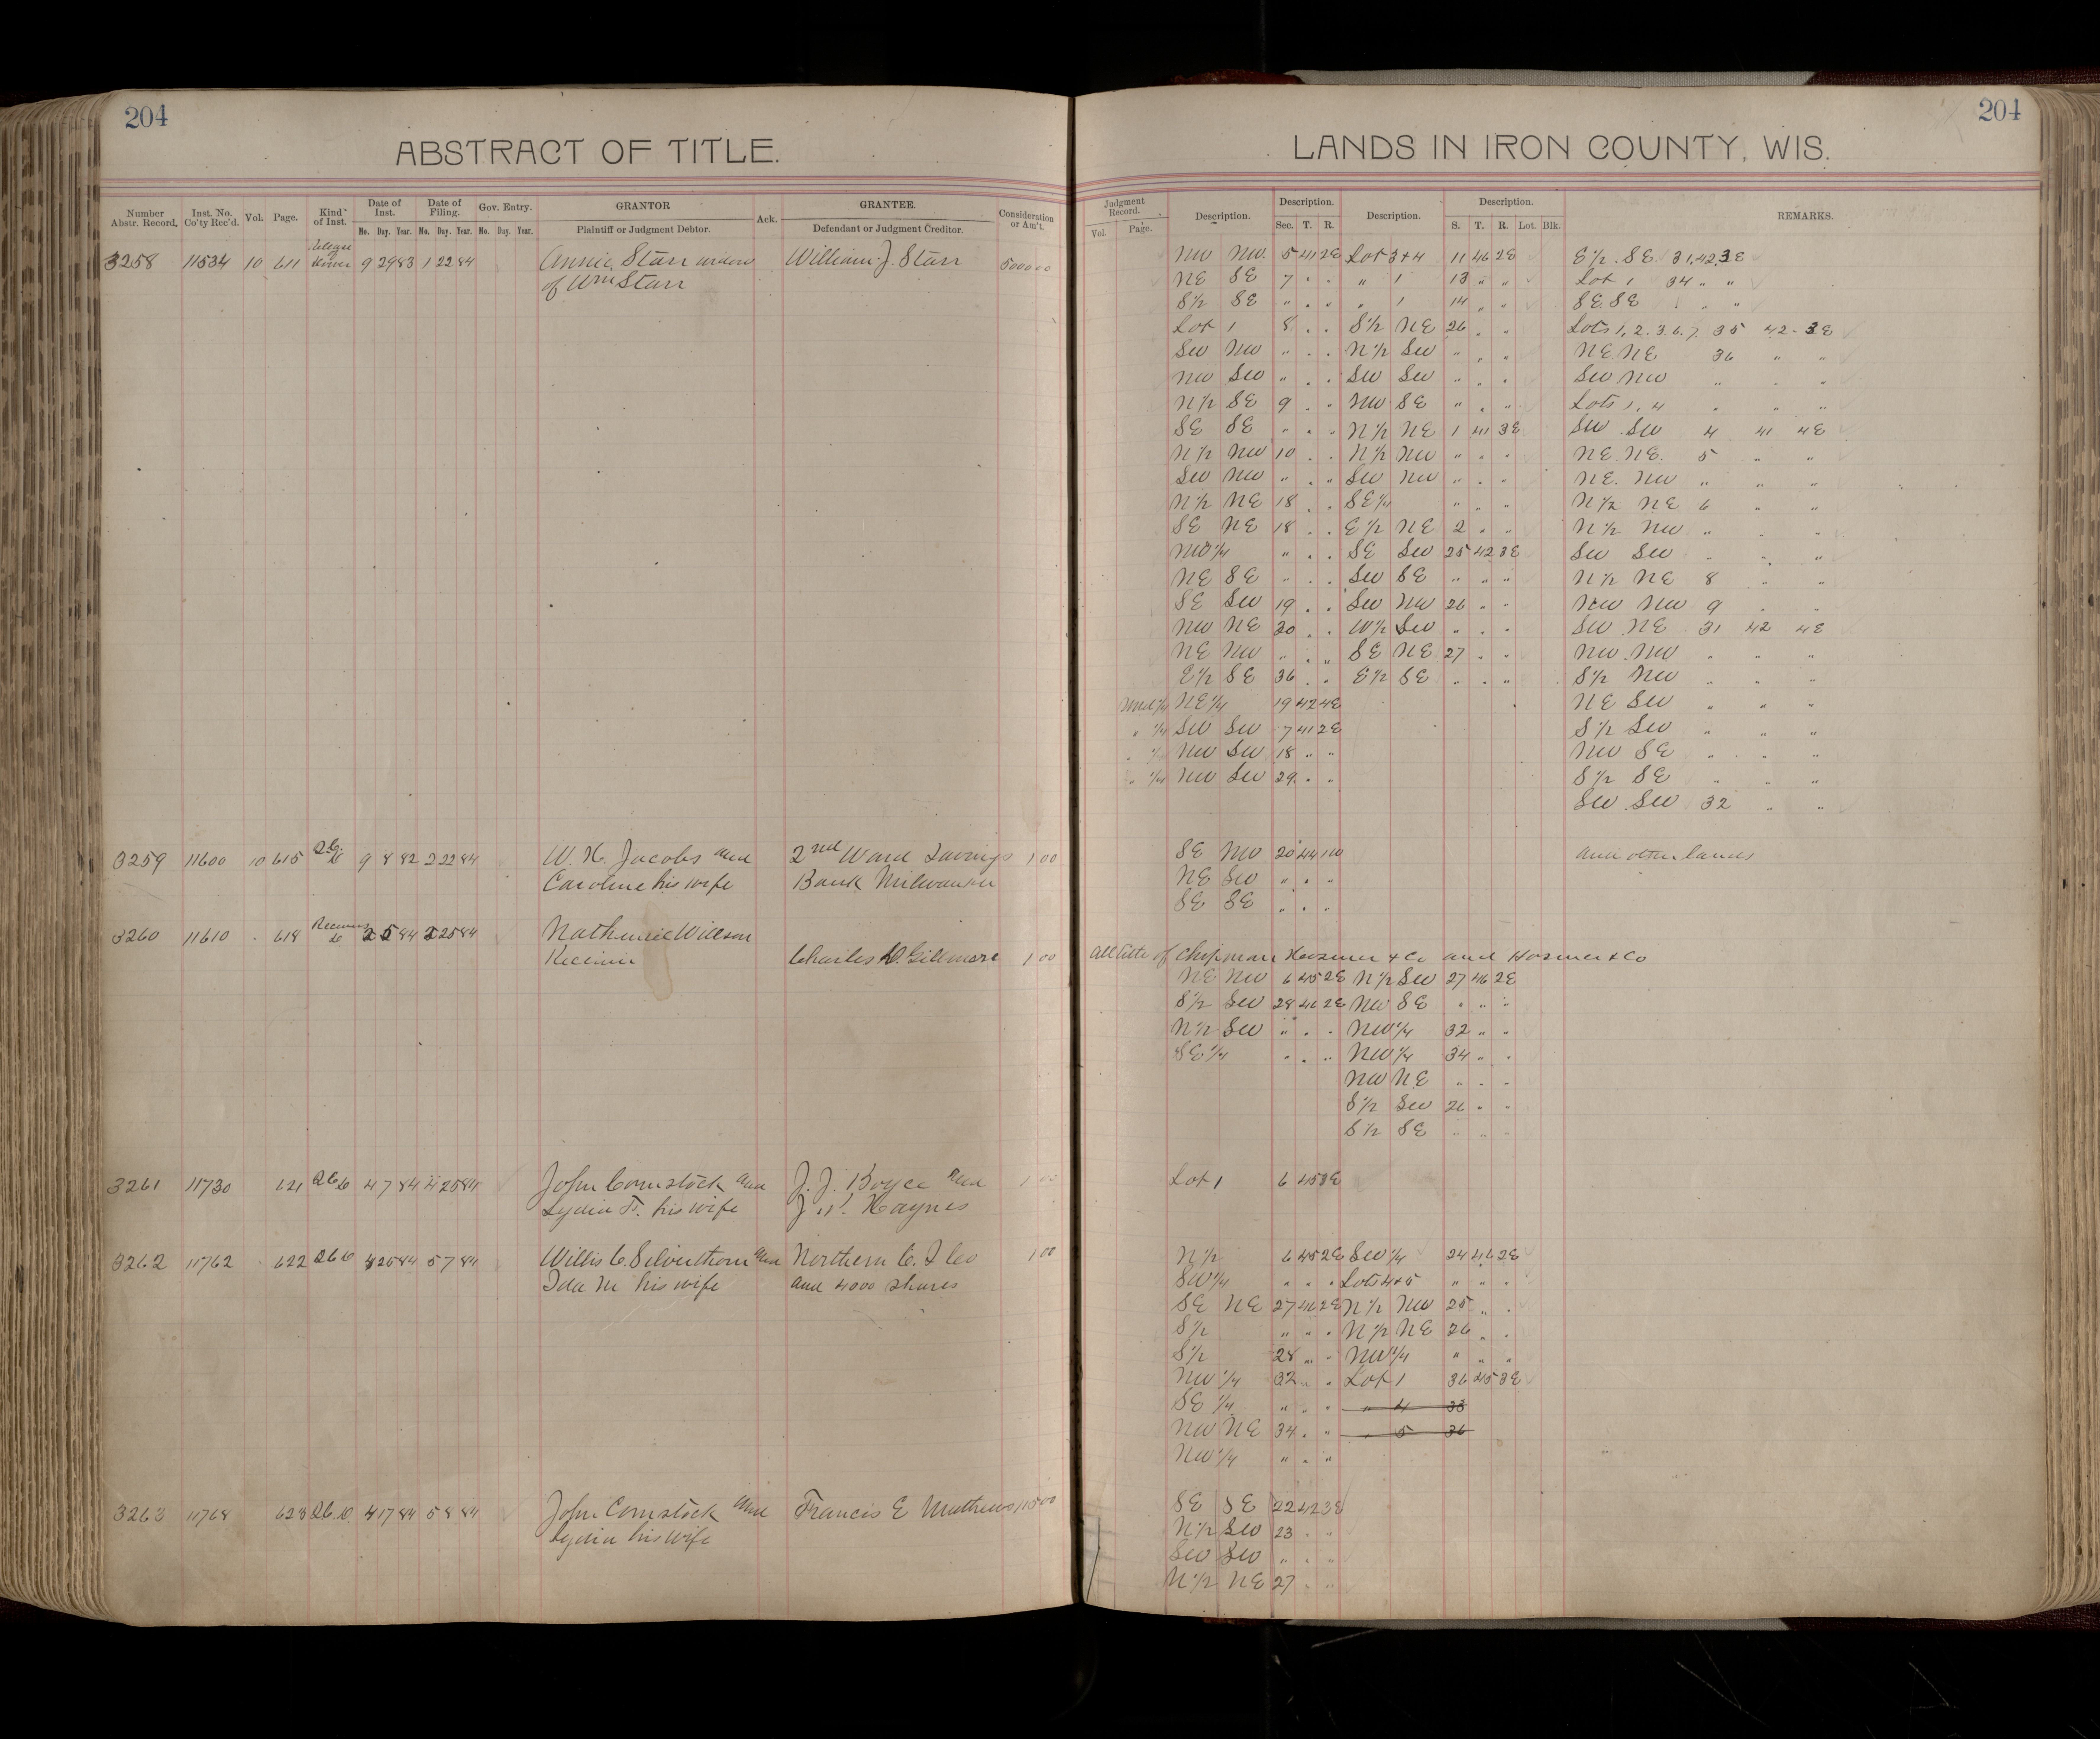 204
ABSTRACT OF TITLE.
Number Abstr. Record. Inst. No. Co'ty Rec'd. Vol. Page. Kind of Inst. Date of Inst. Date of Filing. Gov. Entry. GRANTOR Ack. GRANTEE. Consideration or Am't.
Mo. Day. Year. Mo. Day. Year. Mo. Day. Year. Plaintiff or Judgment Debtor. Defendant or Judgment Creditor.
3258 11534 10 611 9 29 83 1 22 84 Annie Starr widow William J. Starr 5000 00
of Wm Starr
3259 11600 10 615 9 8 82 2 22 84 W. H. Jacobs and 2nd Ward Savings 1 00
Caroline his wife Bank Milwaukee
3260 11610 618 84 2 25 84 Nathaniel Willson
Receiver Charles D. Gilmore 1 00
3261 11730 621 4 7 84 4 25 84 John Comstock and J. J. Boyce and 1 00
Lydia F. his wife J. P. Haynes
3262 11762 622 25 84 5 7 84 Willis C. Silverthorn and Northern C. I Co 1 00
Ida M his wife and 4000 shares
3263 11768 623 4 17 84 5 8 84 John Comstock and Francis E Mathews
Lydia his wife
204
LANDS IN IRON COUNTY, WIS.
Judgment Record. Description. Description. Description. Description. REMARKS.
Vol. Page. Sec. T. R. S. T. R. Lot. Blk.
NW NW 5 41 2E Lot 3+4 11 46 2E E½ SE 31,42,3E
NE SE 7 " " " 1 13 " " Lot 1 34 " "
S½ SE " " " " 1 14 " " SE SE " " "
Lot 1 8 " " S½ NE 26 " " Lots 1, 2, 3, 6, 7, 35 42 3E
SW NW " " " N½ SW " " " NE NE 36 " "
NW SW " " " SW SW " " " SW NW " " "
N½ SE 9 " " NW SE " " " Lots 1, 4 " " "
SE SE " " " N½ NE 1 41 3E SW SW 4 41 4E
N½ NW 10 " " N½ NW " " " NE NE 5 " "
SW NW " " " SW NW " " " NE NW " " "
N½ NE 18 " " SE¼ " " " N½ NE 6 " "
SE NE 18 " " E½ NE 2 " " N½ NW " " "
NW¼ " " " SE SW 25 42 3E SW SW " " "
NE SE " " " SW SE " " " N½ NE 8 " "
SE SW 19 " " SW NW 26 " " NW NW 9 " "
NW NE 30 " " W½ SW " " " SW NE 31 42 4E
NE NW " " " SE NE 27 " " NW NW " " "
E½ SE 36 " " E½ SE " " " S½ NW " " "
Und ¼ NE¼ 19 42 4E NE SW " " "
" ¼ SW SW 7 41 2E S½ SW " " "
" ¼ NW SW 18 " " NW SE " " "
" ¼ NW SW 29 " " S½ SE " " "
SW SW 32 " "
SE NW 20 44 1W and other lands
NE SW " " "
SE SE " " "
All title of Chapman Hosmer & Co and Hosmer & Co
NE NW 6 45 2E N½ SW 27 46 2E
S½ SW 28 46 2E NW SE " " "
N½ SW " " " NW¼ 32 " "
SE¼ " " " NW¼ 34 " "
NW NE " " "
S½ SW 26 " "
S½ SE " " "
Lot 1 6 45 3E
N½ 6 45 2E SW¼ 24 46 2E
SW¼ " " " Lots 4+5 " " "
SE NE 27 46 2E N½ NW 25 " "
S½ " " " N½ NE 26 " "
S½ 28 " " NW¼ " " "
NW¼ 32 " " Lot 1 36 45 3E
SE¼ " " " " 4 33
NW NE 34 " " " 5 36
NW¼ " " "
SE SE 22 42 3E
N½ SW 23 " "
SW SW " " "
N½ NE 27 " "